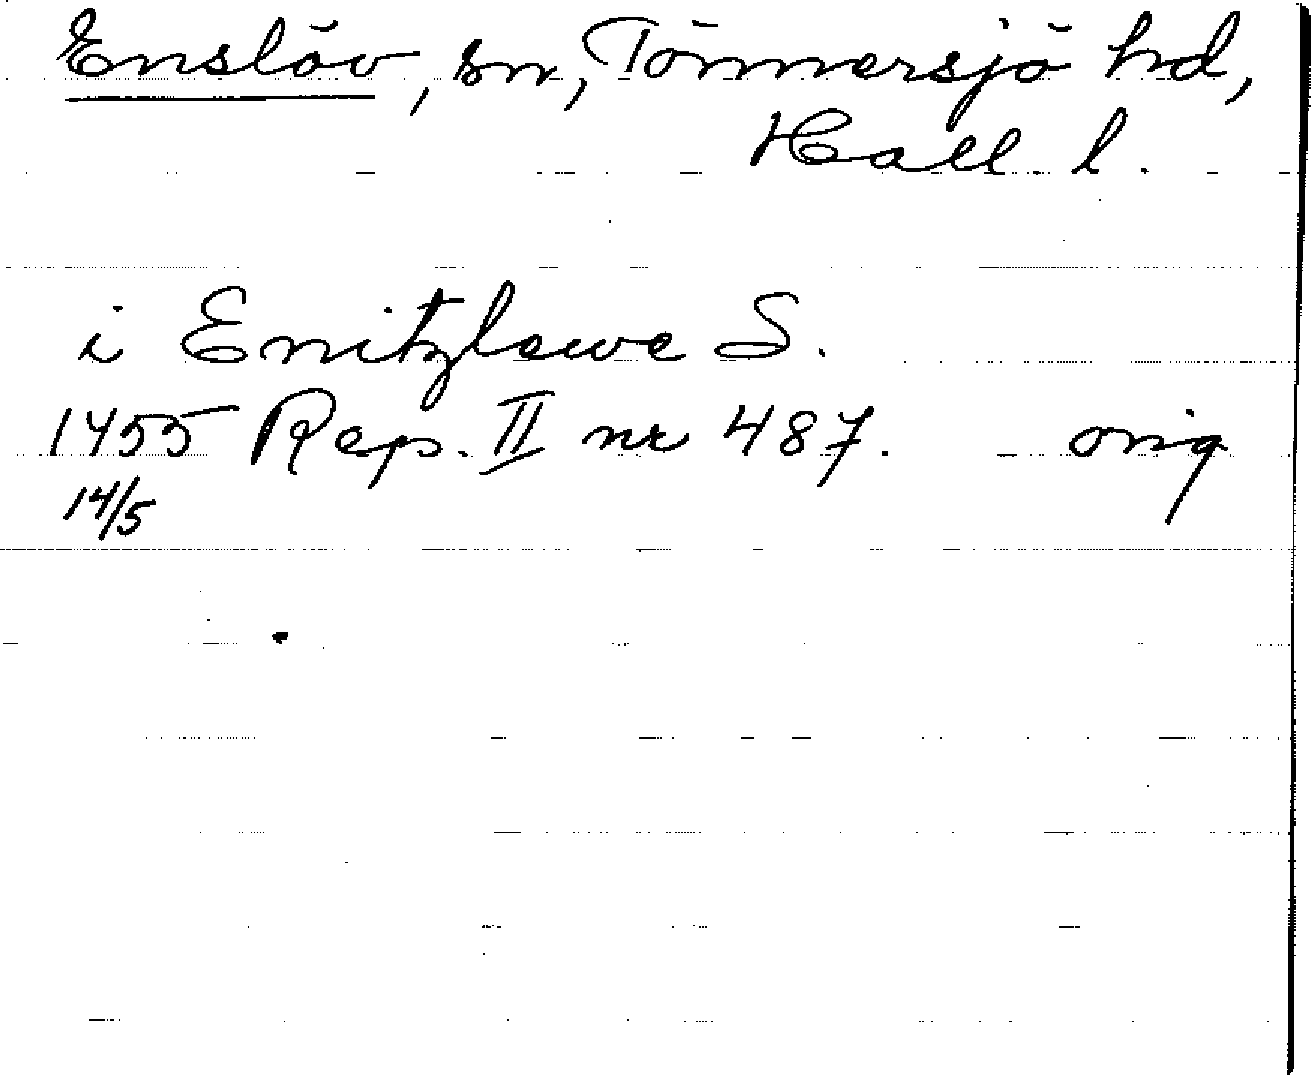 Enslöv, sn, Tönnersjö hd,
Hall. l.
i Enitzlewe S.
1455 Rep. II nr 487. orig
14/5